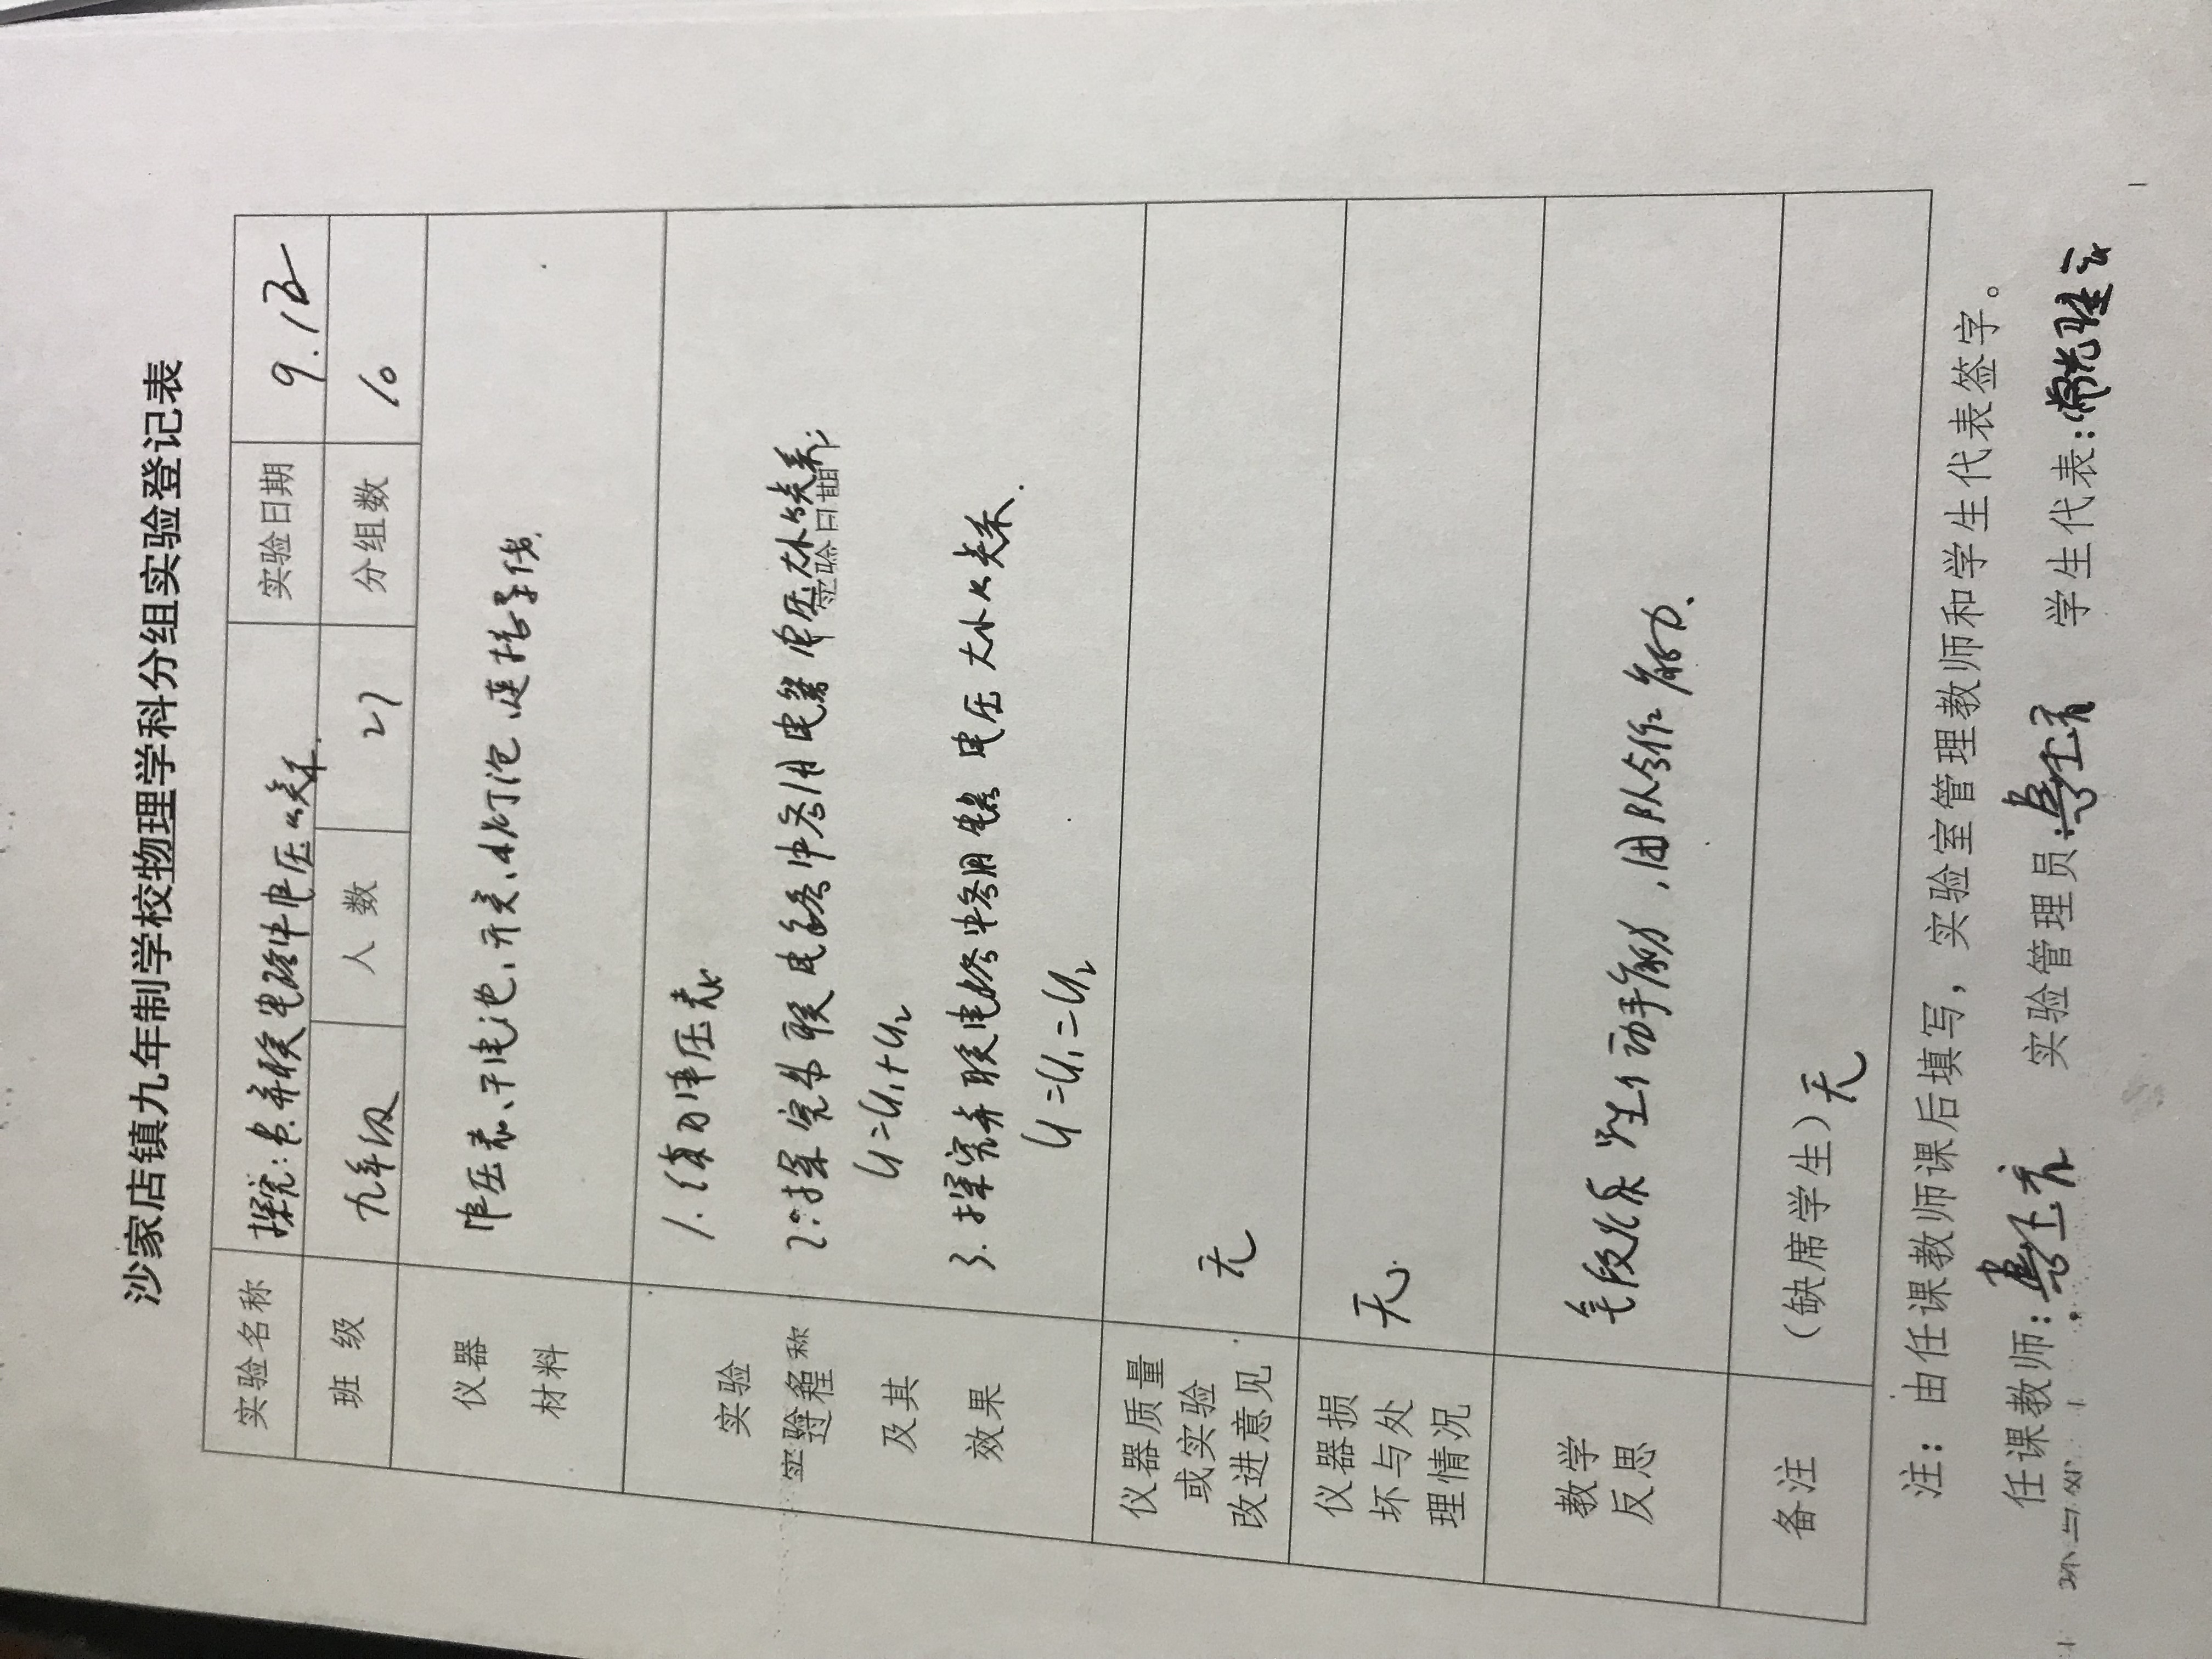 沙家店镇九年制学校物理学科分组实验登记表
实验名称 探究:串并联电路中电压的关系. 实验日期 9.12
班 级 九年级 人 数 27 分组数 10
仪器
材料
电压表、干电池、开关、小灯泡、连接导线.
实验
过程
及其
效果
1.练习电压表
2.探究串联电路中各用电器电压大小的关系;
U=U₁+U₂
3.探究并联电路中各用电器电压大小的关系.
U=U₁=U₂
仪器质量
或实验
改进意见
无
仪器损
坏与处
理情况
无.
教学
反思
学生动手能力,团队合作能力.
备注
(缺席学生)无
注:由任课教师课后填写,实验室管理教师和学生代表签字。
任课教师: 实验管理员: 学生代表: